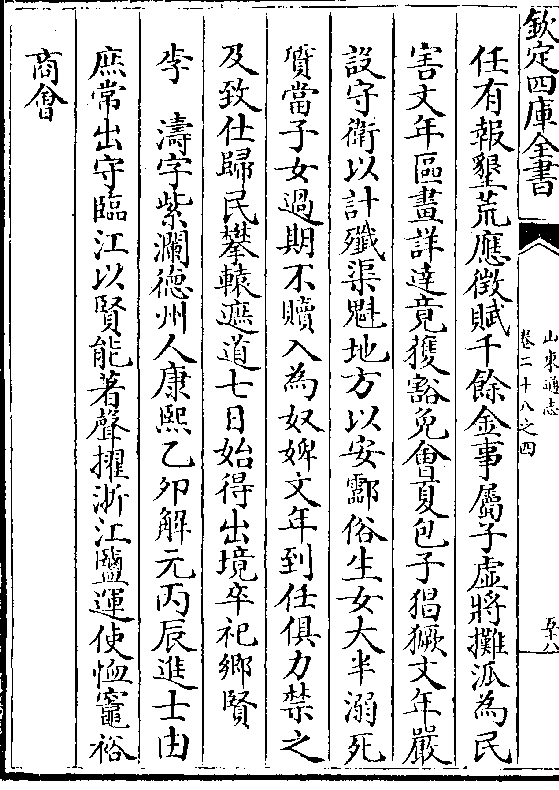 欽定四庫全書
山東通志
卷二十八之四
五十八
任有報墾荒應徵賦千餘金事屬子虛將攤派為民
害文年區畫詳達竟獲豁免會夏包子猖獗文年嚴
設守衛以計殲渠魁地方以安酃俗生女大半溺死
質當子女過期不贖入為奴婢文年到任俱力禁之
及致仕歸民攀轅遮道七日始得出境卒祀鄉賢
李　濤字紫瀾德州人康熙乙卯解元丙辰進士由
庶常出守臨江以賢能著聲擢浙江鹽運使恤竈裕
商會